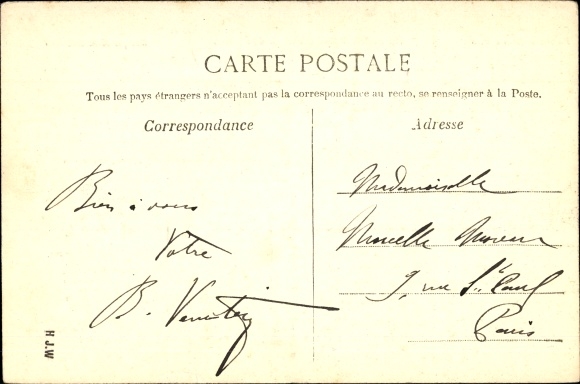 CARTE POSTALE
Tous les pays étrangers n'acceptant pas la correspondance au recto, se renseigner à la Poste.
Correspondance
Bien à vous
Votre
B.
Adresse
Mademoiselle
Marcelle Moreau
9, rue St. Paul
Paris
H J.W